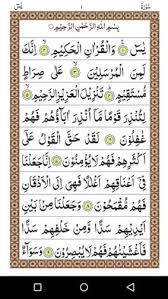 يٰسٓ ١ سُوْرَة
بِسْمِ اللّٰهِ الرَّحْمٰنِ الرَّحِيْمِ
يٰسٓ ۝١ وَالْقُرْاٰنِ الْحَكِيْمِ ۝٢ اِنَّكَ
لَمِنَ الْمُرْسَلِيْنَ ۝٣ عَلٰى صِرَاطٍ
مُّسْتَقِيْمٍ ۝٤ تَنْزِيْلَ الْعَزِيْزِ الرَّحِيْمِ ۝٥
لِتُنْذِرَ قَوْمًا مَّاۤ اُنْذِرَ اٰبَآؤُهُمْ فَهُمْ
غٰفِلُوْنَ ۝٦ لَقَدْ حَقَّ الْقَوْلُ عَلٰۤى
اَكْثَرِهِمْ فَهُمْ لَا يُؤْمِنُوْنَ ۝٧ اِنَّا جَعَلْنَا
فِيْۤ اَعْنَاقِهِمْ اَغْلٰلًا فَهِيَ اِلَى الْاَذْقَانِ
فَهُمْ مُّقْمَحُوْنَ ۝٨ وَجَعَلْنَا مِنْۢ بَيْنِ
اَيْدِيْهِمْ سَدًّا وَّمِنْ خَلْفِهِمْ سَدًّا
فَاَغْشَيْنٰهُمْ فَهُمْ لَا يُبْصِرُوْنَ ۝٩ وَسَوَآءٌ